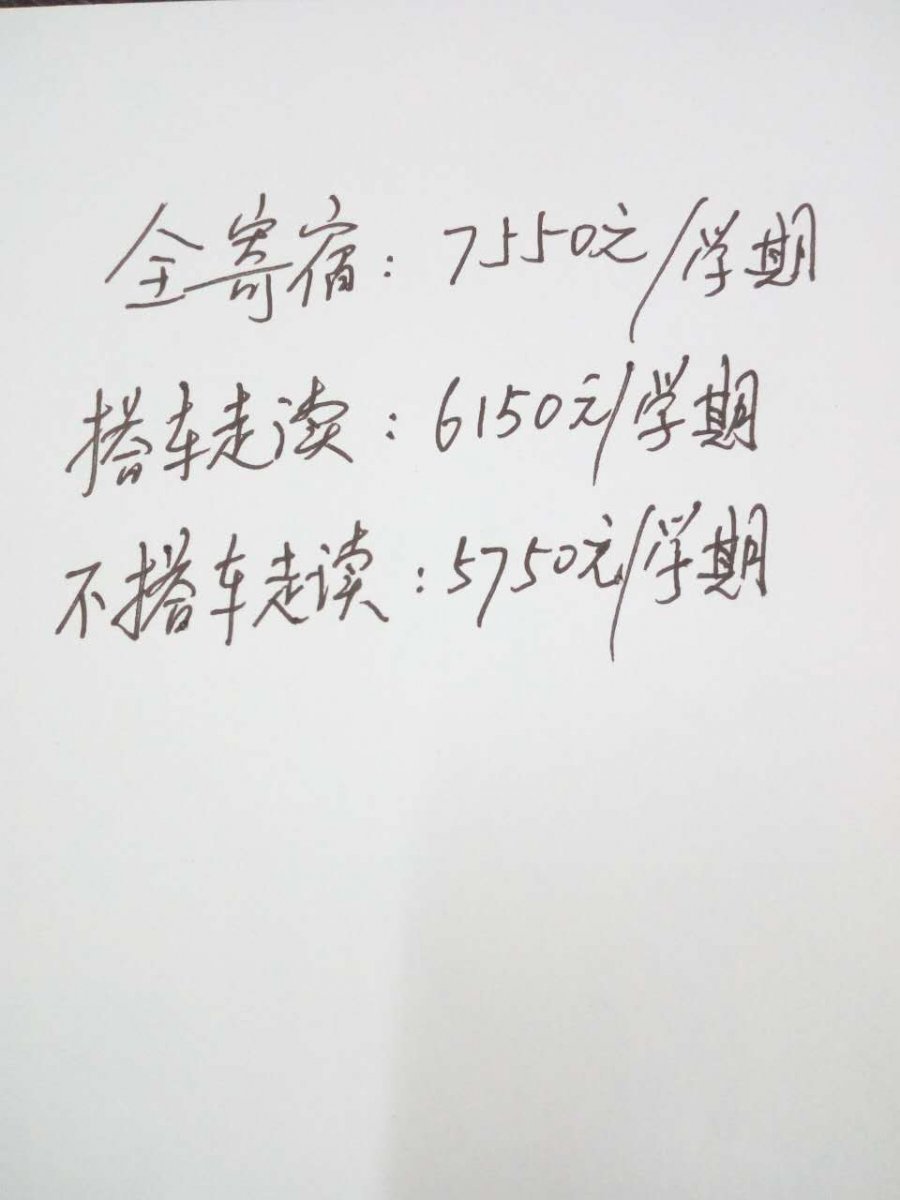 全寄宿：7550元/学期
搭车走读：6150元/学期
不搭车走读：5750元/学期